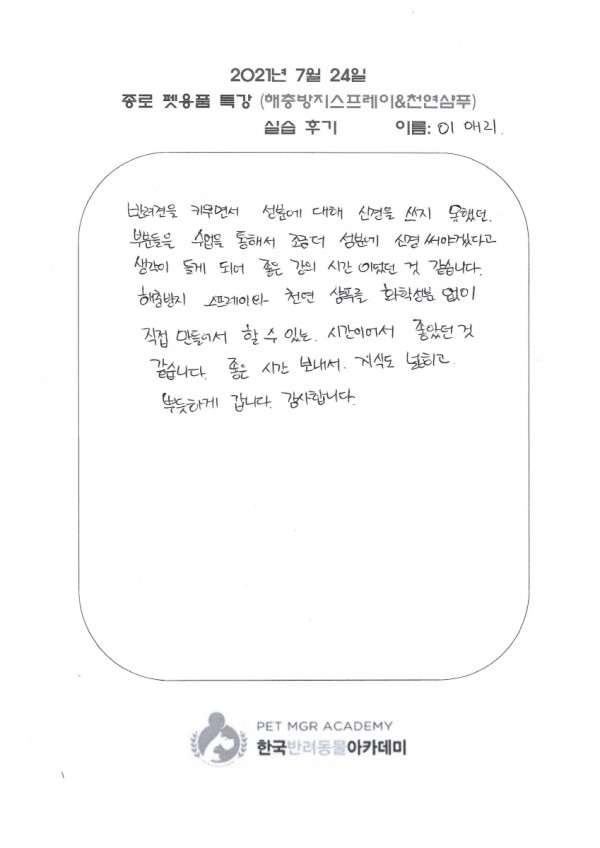 2021년 7월 24일
종로 펫용품 특강 (해충방지스프레이&천연샴푸)
실습 후기 이름: 이 애리.
반려견을 키우면서 성분에 대해 신경을 쓰지 못했던.
부분들을 수업을 통해서 조금더 성분에 신경 써야겠다고
생각이 들게 되어 좋은 강의 시간 이었던 것 같습니다.
해충방지 스프레이와 천연 샴푸를 화학성분 없이
직접 만들어서 할 수 있는. 시간이어서 좋았던 것
같습니다. 좋은 시간 보내서. 지식도 넓히고.
뿌듯하게 갑니다. 감사합니다.
PET MGR ACADEMY
한국반려동물아카데미